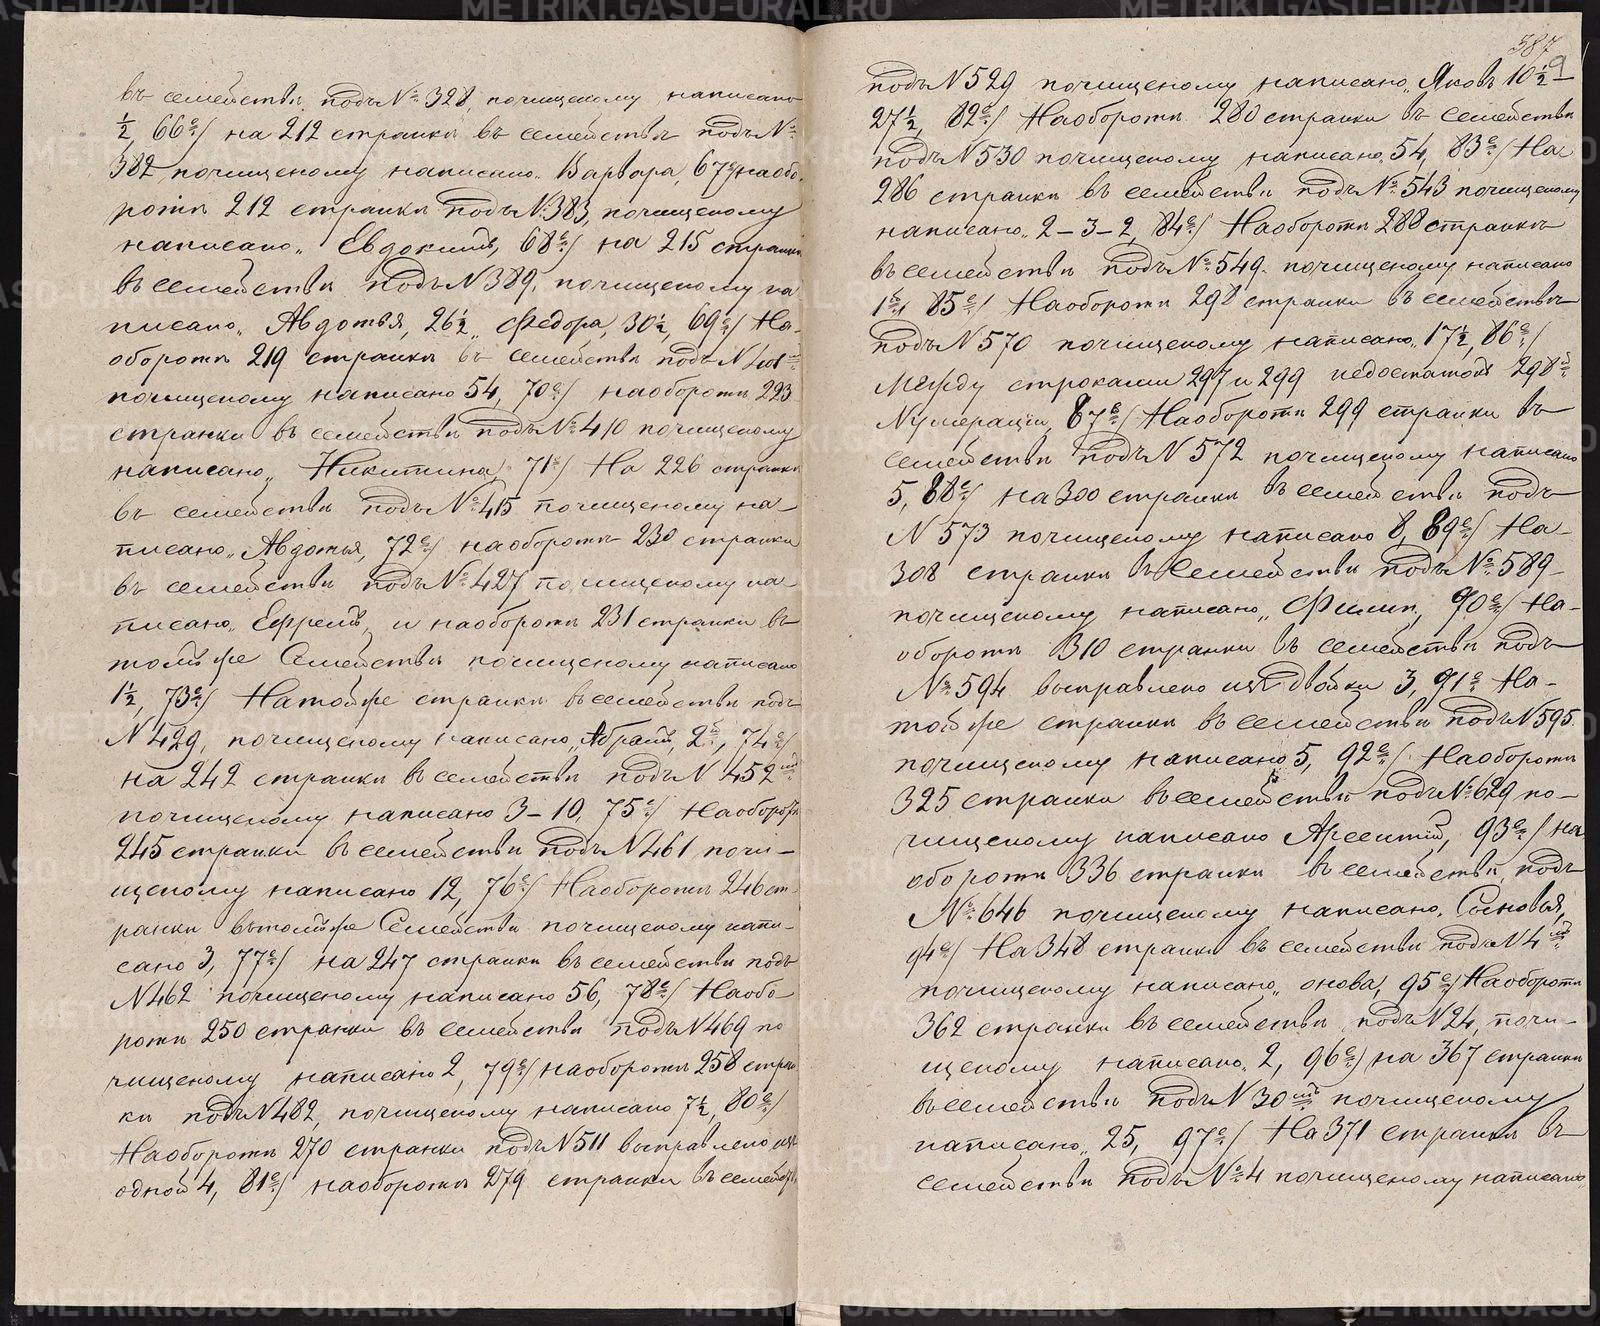 въ семействѣ, подъ № 328, почищеному написано
½, 66е/ на 212 странки въ семействѣ подъ №
382, почищеному написано „Варвара, 67е/ наобо-
ротѣ 212 странки подъ № 383, почищеному
написано „Евдокимъ, 68е/ на 215 странки
въ семействѣ подъ N 389, почищеному на-
писано „Авдотья, 26½ „Федора, 30½, 69е/ На-
оборотѣ 219 странки въ семействѣ подъ N
почищеному написано 54, 70е/ наоборотѣ 223
странки въ семействѣ подъ № 410 почищеному
написано „Никитина, 71е/ На 226 странки
въ семействѣ подъ № 415 почищеному на-
писано „Авдотья, 72е/ наоборотѣ 230 странки
въ семействѣ подъ № 427 почищеному на-
писано „Ефремъ, и наоборотѣ 231 странки въ
томъ же Семействѣ почищеному написано
1½, 73е/ На той же странки въ семействѣ подъ
N 429, почищеному написано „Абрамъ, 2, 74е/
на 242 странки въ семействѣ подъ N 452мъ
почищеному написано 3-10, 75е/ Наоборотѣ
245 странки въ семействѣ подъ N 461 почи-
щеному написано 12, 76е/ Наоборотѣ 246 ст-
ранки въ томъ же Семействѣ почищеному напи-
сано 3, 77е/ на 247 странки въ семействѣ подъ
N 462 почищеному написано 56, 78е/ Наобо-
ротѣ 250 странки въ семействѣ подъ N 469 по
чищеному написано 2, 79е/ наоборотѣ 258 стран
ки подъ N 482, почищеному написано 7½, 80е/
Наоборотѣ 270 странки подъ N 511 выправлено изъ
одной 4, 81е/ наоборотѣ 279 странки въ семейст
387
9
подъ N 529 почищеному написано „Яковъ 10½-
27½, 82е/ Наоборотѣ 280 странки въ семействѣ
подъ N 530 почищеному написано 54, 83е/ На
286 странки въ семействѣ подъ № 543 почищеному
написано „2-3-2, 84е/ Наоборотѣ 288 странки
въ семействѣ подъ № 549 почищеному написано
85е/ Наоборотѣ 298 странки въ семействѣ
подъ N 570 почищеному написано „17½, 86е/
Между строками 297 и 299 недостатокъ 298й
Нумераціи, 87е/ Наоборотѣ 299 странки въ
семействѣ подъ N 572 почищеному написано
5, 88е/ на 300 странки въ семействѣ подъ
N 573 почищеному написано 8, 89е/ На-
308 странки въ Семействѣ подъ № 589-
почищеному написано „Филип, 90е/ На-
оборотѣ 310 странки въ семействѣ подъ
№ 594 выправлено изъ двойки 3, 91е/ На-
той же странки въ семействѣ подъ N 595
почищеному написано 5, 92е/ Наоборотѣ
325 странки въ семействѣ подъ № 629 по-
чищеному написано Арсентій, 93е/ на
оборотѣ 336 странки въ семействѣ, подъ
№ 646 почищеному написано „Сыновья,
94е/ На 348 странки въ семействѣ подъ N 4мъ
почищеному написано „онова, 95е/ Наоборотѣ
362 странки въ семействѣ подъ N 24, почи-
щеному написано „2, 96е/ на 367 странки
въ семействѣ подъ N 30мъ почищеному
написано „25, 97е/ На 371 странки въ
семействѣ подъ № 4 почищеному написано